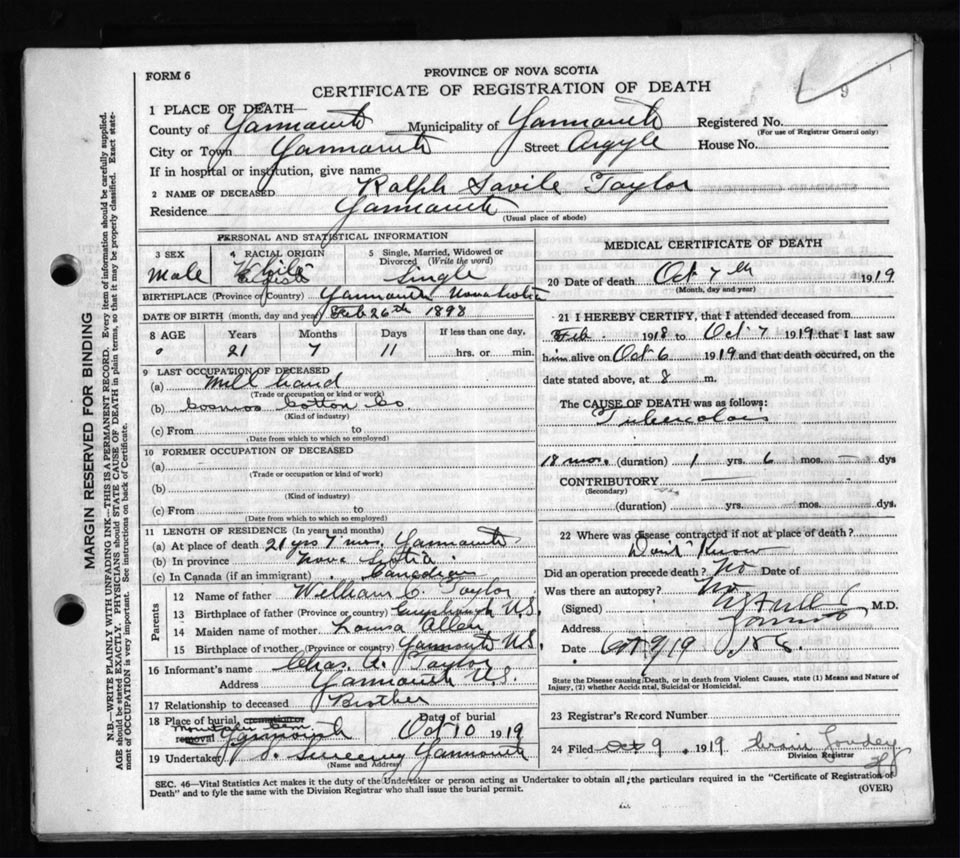 FORM 6
PROVINCE OF NOVA SCOTIA
CERTIFICATE OF REGISTRATION OF DEATH
9
1 PLACE OF DEATH—
County of Yarmouth Municipality of Yarmouth Registered No.
(For use of Registrar General only)
City or Town Yarmouth Street Argyle House No.
If in hospital or institution, give name
2 NAME OF DECEASED Ralph Savile Taylor
Residence Yarmouth
(Usual place of abode)
PERSONAL AND STATISTICAL INFORMATION
3 SEX 4 RACIAL ORIGIN 5 Single, Married, Widowed or Divorced (Write the word)
Male White English Single
BIRTHPLACE (Province or Country) Yarmouth Nova Scotia
DATE OF BIRTH (month, day and year) Feb 26th 1898
8 AGE Years Months Days If less than one day,
21 7 11 hrs. or min.
9 LAST OCCUPATION OF DECEASED
(a) Mill hand
(Trade or occupation or kind or work)
(b) Cosmos Cotton Co
(Kind of industry)
(c) From to
(Date from which to which so employed)
10 FORMER OCCUPATION OF DECEASED
(a)
(Trade or occupation or kind of work)
(b)
(Kind of industry)
(c) From to
(Date from which to which so employed)
11 LENGTH OF RESIDENCE (In years and months)
(a) At place of death 21 yrs 7 mos. Yarmouth
(b) In province Nova Scotia
(c) In Canada (if an immigrant) Canadian
Parents
12 Name of father William C. Taylor
13 Birthplace of father (Province or country) Guysborough N.S.
14 Maiden name of mother Louisa Allen
15 Birthplace of mother (Province or country) Yarmouth N.S.
16 Informant's name Chas. A. Taylor
Address Yarmouth N.S.
17 Relationship to deceased Brother
18 Place of burial, cremation or Date of burial
Mountain Cem.
removal Yarmouth Oct 10 1919
19 Undertaker Sweeny Yarmouth
(Name and Address)
MEDICAL CERTIFICATE OF DEATH
20 Date of death Oct 7th 1919
(Month, day and year)
21 I HEREBY CERTIFY, that I attended deceased from
Feb. 1918 to Oct 7 1919 that I last saw
him alive on Oct 6 1919 and that death occurred, on the
date stated above, at 8 m.
The CAUSE OF DEATH was as follows:
Tuberculosis
18 mos. (duration) 1 yrs. 6 mos. — dys
CONTRIBUTORY
(Secondary)
(duration) yrs. mos. dys.
22 Where was disease contracted if not at place of death?
Don't Know
Did an operation precede death? No Date of
Was there an autopsy? No
(Signed) M.D.
Address Yarmouth
Date Oct 9/19
State the Disease causing Death, or in death from Violent Causes, state (1) Means and Nature of
Injury, (2) whether Accidental, Suicidal or Homicidal.
23 Registrar's Record Number
24 Filed Oct 9 1919
Division Registrar
SEC. 46—Vital Statistics Act makes it the duty of the Undertaker or person acting as Undertaker to obtain all the particulars required in the "Certificate of Registration of
Death" and to fyle the same with the Division Registrar who shall issue the burial permit.
(OVER)
MARGIN RESERVED FOR BINDING
N.B.—WRITE PLAINLY WITH UNFADING INK—THIS IS A PERMANENT RECORD. Every item of information should be carefully supplied.
AGE should be stated EXACTLY. PHYSICIANS should STATE CAUSE OF DEATH in plain terms, so that it may be properly classified. Exact state-
ment of OCCUPATION is very important. See instructions on back of Certificate.